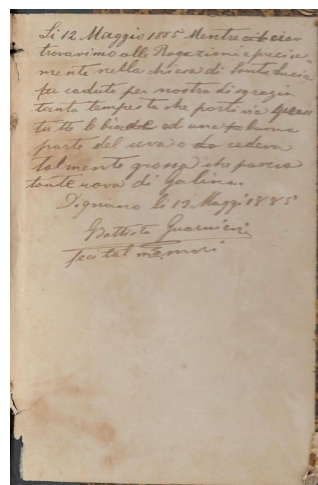 Li 12 Maggio 1885 Mentre ci
trovavimo alle Rogazioni e precisa
mente nella chiesa di Santa Lucia
fu caduta per nostra disgrazia
tante tempesta che portò via quasi
tutto le biade ed una po buona
parte del uva o cadeva
talmente grossa che pareva
tante uova di Galina.
Dignano li 12 Maggi 1885
GBattista Guarnieri
feci tal memori